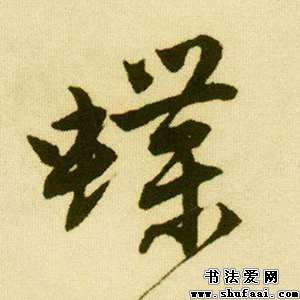 蝶
书法爱网
www.shufaai.com